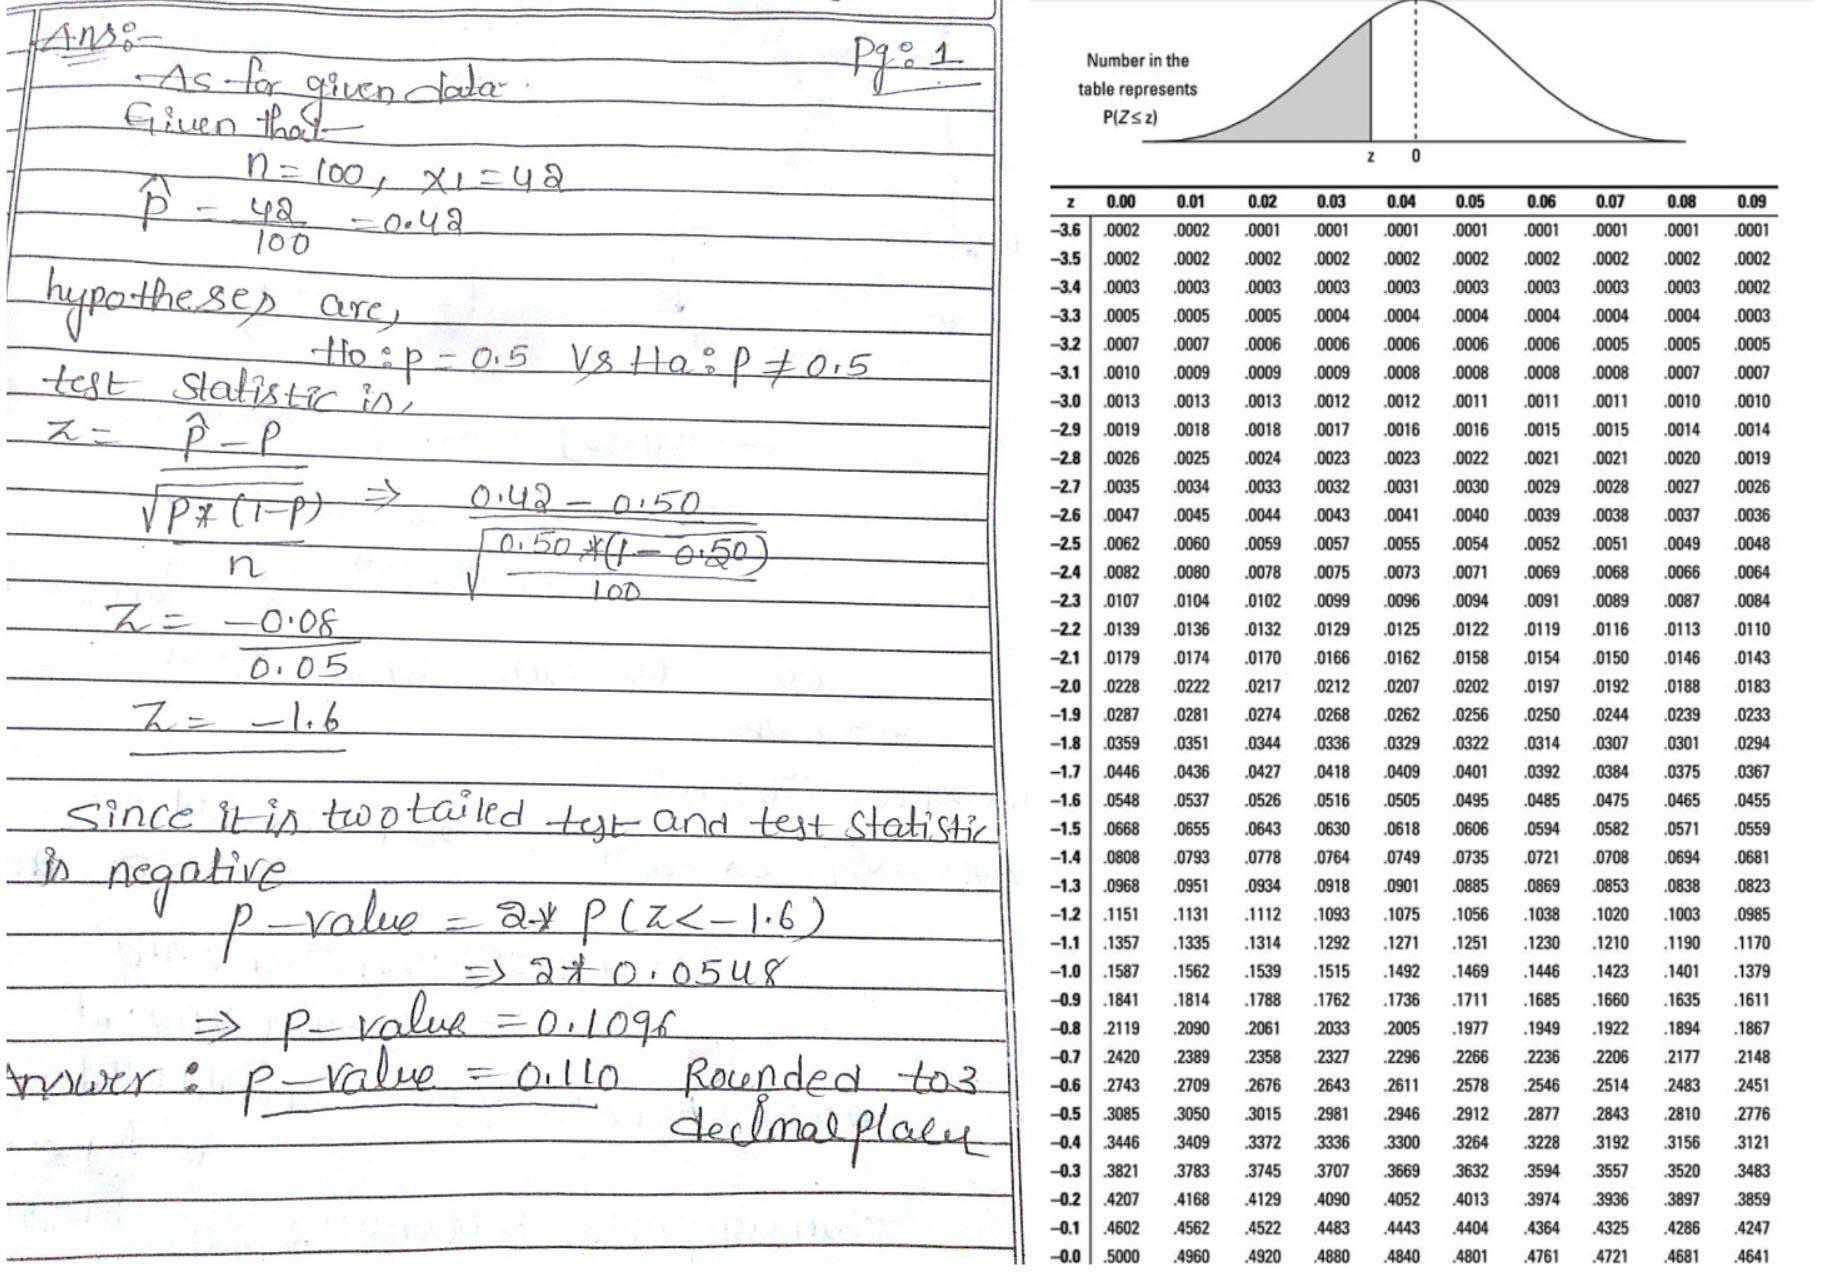 Ans:-
Pg: 1
As for given data.
Given that
n = 100, x1 = 42
p̂ = 42/100 = 0.42
hypotheses are,
Ho: p = 0.5 Vs Ha: p ≠ 0.5
test statistic is,
z = p̂ - p / √(p*(1-p)/n) ⇒ 0.42 - 0.50 / √(0.50*(1-0.50)/100)
Z = -0.08/0.05
Z = -1.6
Since it is two tailed test and test statistic
is negative
p-value = 2* P(Z<-1.6)
⇒ 2* 0.0548
⇒ p-value = 0.1096
Answer: p-value = 0.110 Rounded to 3
decimal places
Number in the
table represents
P(Z≤z)
z 0
z 0.00 0.01 0.02 0.03 0.04 0.05 0.06 0.07 0.08 0.09
-3.6 .0002 .0002 .0001 .0001 .0001 .0001 .0001 .0001 .0001 .0001
-3.5 .0002 .0002 .0002 .0002 .0002 .0002 .0002 .0002 .0002 .0002
-3.4 .0003 .0003 .0003 .0003 .0003 .0003 .0003 .0003 .0003 .0002
-3.3 .0005 .0005 .0005 .0004 .0004 .0004 .0004 .0004 .0004 .0003
-3.2 .0007 .0007 .0006 .0006 .0006 .0006 .0006 .0005 .0005 .0005
-3.1 .0010 .0009 .0009 .0009 .0008 .0008 .0008 .0008 .0007 .0007
-3.0 .0013 .0013 .0013 .0012 .0012 .0011 .0011 .0011 .0010 .0010
-2.9 .0019 .0018 .0018 .0017 .0016 .0016 .0015 .0015 .0014 .0014
-2.8 .0026 .0025 .0024 .0023 .0023 .0022 .0021 .0021 .0020 .0019
-2.7 .0035 .0034 .0033 .0032 .0031 .0030 .0029 .0028 .0027 .0026
-2.6 .0047 .0045 .0044 .0043 .0041 .0040 .0039 .0038 .0037 .0036
-2.5 .0062 .0060 .0059 .0057 .0055 .0054 .0052 .0051 .0049 .0048
-2.4 .0082 .0080 .0078 .0075 .0073 .0071 .0069 .0068 .0066 .0064
-2.3 .0107 .0104 .0102 .0099 .0096 .0094 .0091 .0089 .0087 .0084
-2.2 .0139 .0136 .0132 .0129 .0125 .0122 .0119 .0116 .0113 .0110
-2.1 .0179 .0174 .0170 .0166 .0162 .0158 .0154 .0150 .0146 .0143
-2.0 .0228 .0222 .0217 .0212 .0207 .0202 .0197 .0192 .0188 .0183
-1.9 .0287 .0281 .0274 .0268 .0262 .0256 .0250 .0244 .0239 .0233
-1.8 .0359 .0351 .0344 .0336 .0329 .0322 .0314 .0307 .0301 .0294
-1.7 .0446 .0436 .0427 .0418 .0409 .0401 .0392 .0384 .0375 .0367
-1.6 .0548 .0537 .0526 .0516 .0505 .0495 .0485 .0475 .0465 .0455
-1.5 .0668 .0655 .0643 .0630 .0618 .0606 .0594 .0582 .0571 .0559
-1.4 .0808 .0793 .0778 .0764 .0749 .0735 .0721 .0708 .0694 .0681
-1.3 .0968 .0951 .0934 .0918 .0901 .0885 .0869 .0853 .0838 .0823
-1.2 .1151 .1131 .1112 .1093 .1075 .1056 .1038 .1020 .1003 .0985
-1.1 .1357 .1335 .1314 .1292 .1271 .1251 .1230 .1210 .1190 .1170
-1.0 .1587 .1562 .1539 .1515 .1492 .1469 .1446 .1423 .1401 .1379
-0.9 .1841 .1814 .1788 .1762 .1736 .1711 .1685 .1660 .1635 .1611
-0.8 .2119 .2090 .2061 .2033 .2005 .1977 .1949 .1922 .1894 .1867
-0.7 .2420 .2389 .2358 .2327 .2296 .2266 .2236 .2206 .2177 .2148
-0.6 .2743 .2709 .2676 .2643 .2611 .2578 .2546 .2514 .2483 .2451
-0.5 .3085 .3050 .3015 .2981 .2946 .2912 .2877 .2843 .2810 .2776
-0.4 .3446 .3409 .3372 .3336 .3300 .3264 .3228 .3192 .3156 .3121
-0.3 .3821 .3783 .3745 .3707 .3669 .3632 .3594 .3557 .3520 .3483
-0.2 .4207 .4168 .4129 .4090 .4052 .4013 .3974 .3936 .3897 .3859
-0.1 .4602 .4562 .4522 .4483 .4443 .4404 .4364 .4325 .4286 .4247
-0.0 .5000 .4960 .4920 .4880 .4840 .4801 .4761 .4721 .4681 .4641